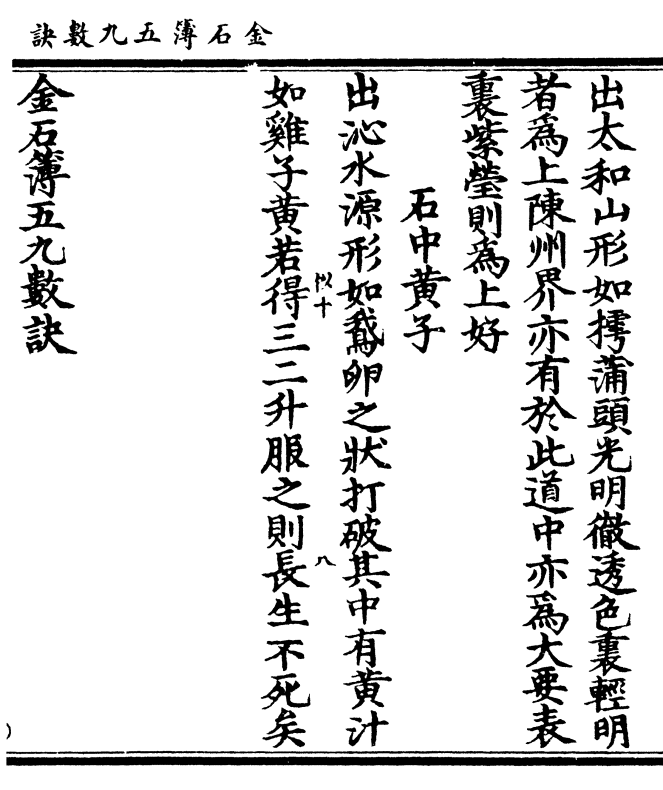 金石簿五九數訣
出太和山形如摴蒲頭光明徹透色裏輕明
者爲上陳州界亦有於此道中亦爲大要表
裏紫瑩則爲上好
石中黃子
出沁水源形如鵝卵之狀打破其中有黃汁
如雞子黃若得三二升服之則長生不死矣
金石簿五九數訣
似十
八